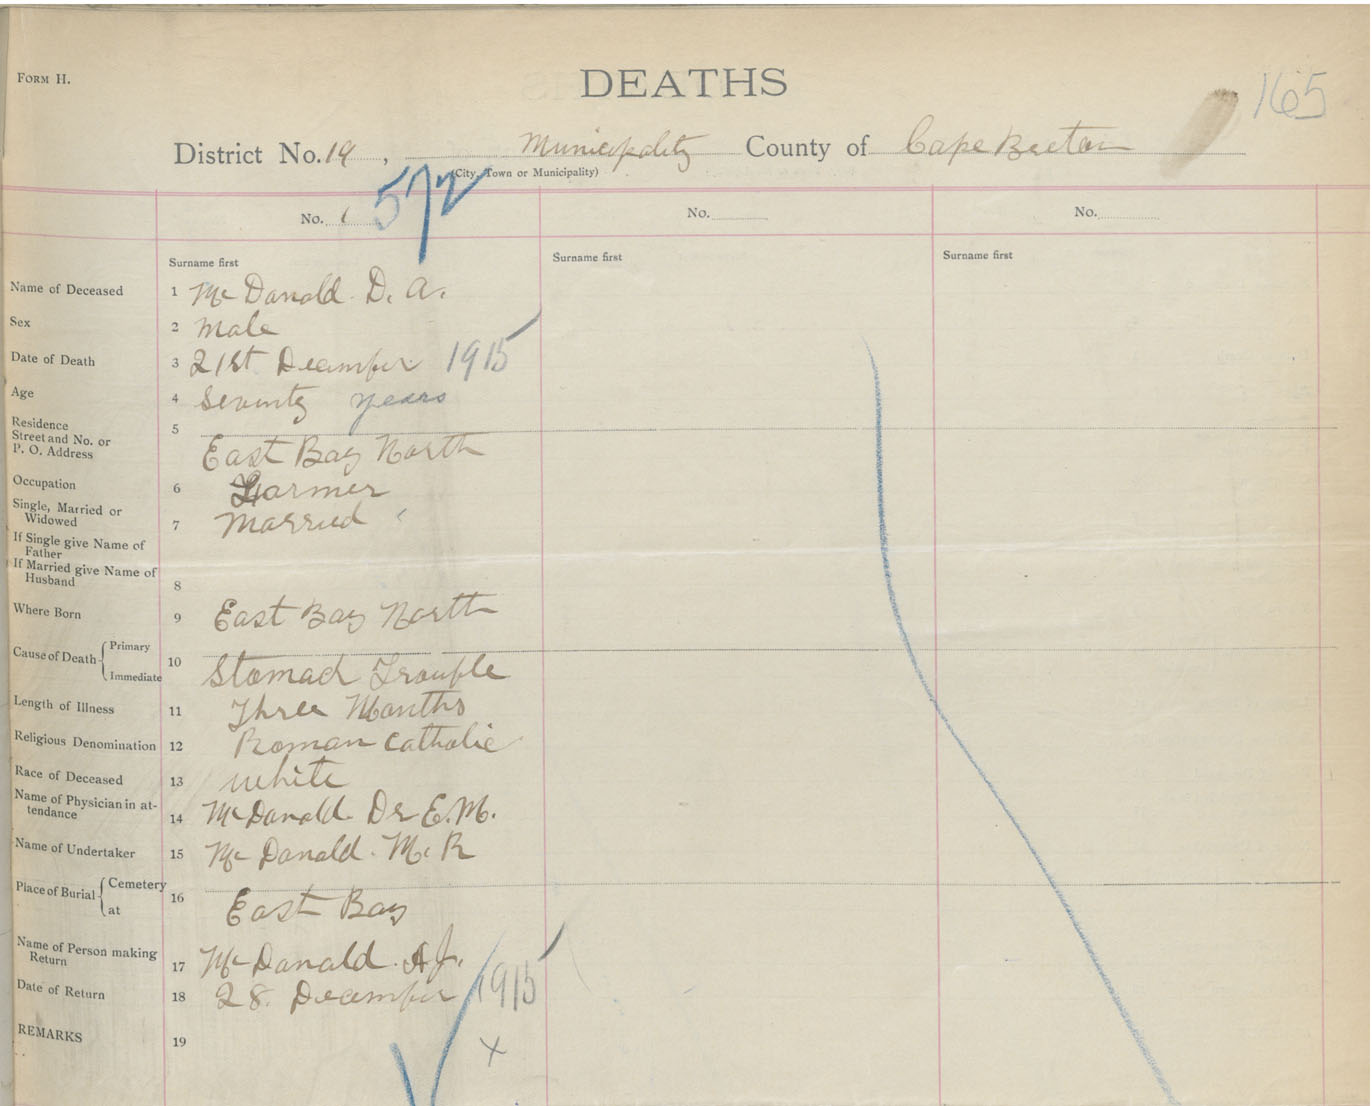 FORM H.
DEATHS
165
District No. 19, Municipality County of Cape Breton
(City, Town or Municipality)
No. 1 572 No. No.
Surname first Surname first Surname first
Name of Deceased 1 McDonald. D. A.
Sex 2 Male
Date of Death 3 21st December 1915
Age 4 Seventy years
Residence
Street and No. or
P. O. Address 5 East Bay North
Occupation 6 Farmer
Single, Married or
Widowed 7 Married
If Single give Name of
Father
If Married give Name of
Husband 8
Where Born 9 East Bay North
Cause of Death { Primary
Immediate 10 Stomach Trouble
Length of Illness 11 Three Months
Religious Denomination 12 Roman Catholic
Race of Deceased 13 White
Name of Physician in at-
tendance 14 McDonald. Dr E. M.
Name of Undertaker 15 McDonald. M. R
Place of Burial { Cemetery
at 16 East Bay
Name of Person making
Return 17 McDonald. A J.
Date of Return 18 28. December 1915
REMARKS 19 x